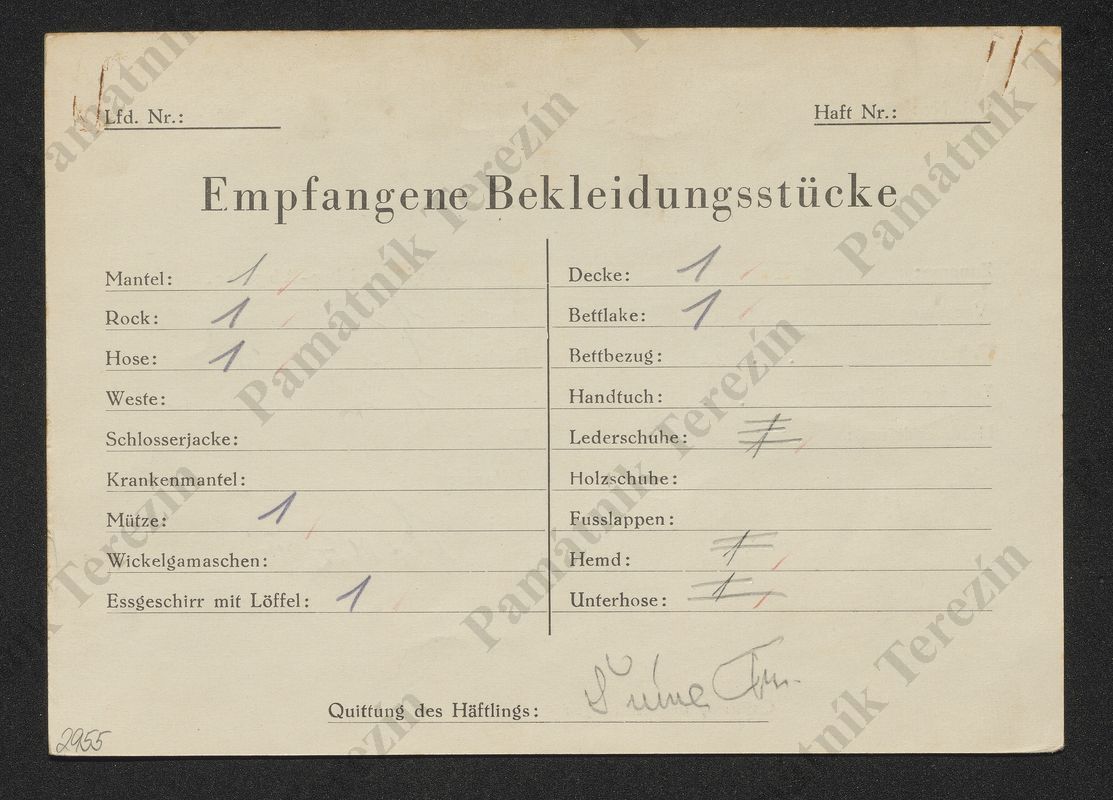 Lfd. Nr.:
Haft Nr.:
Empfangene Bekleidungsstücke
Mantel: 1
Rock: 1
Hose: 1
Weste:
Schlosserjacke:
Krankenmantel:
Mütze: 1
Wickelgamaschen:
Essgeschirr mit Löffel: 1
Decke: 1
Bettlake: 1
Bettbezug:
Handtuch:
Lederschuhe: 1
Holzschuhe:
Fusslappen:
Hemd: 1
Unterhose: 1
Quittung des Häftlings:
2955
Památník Terezín
Památník Terezín
Památník Terezín
Památník Terezín